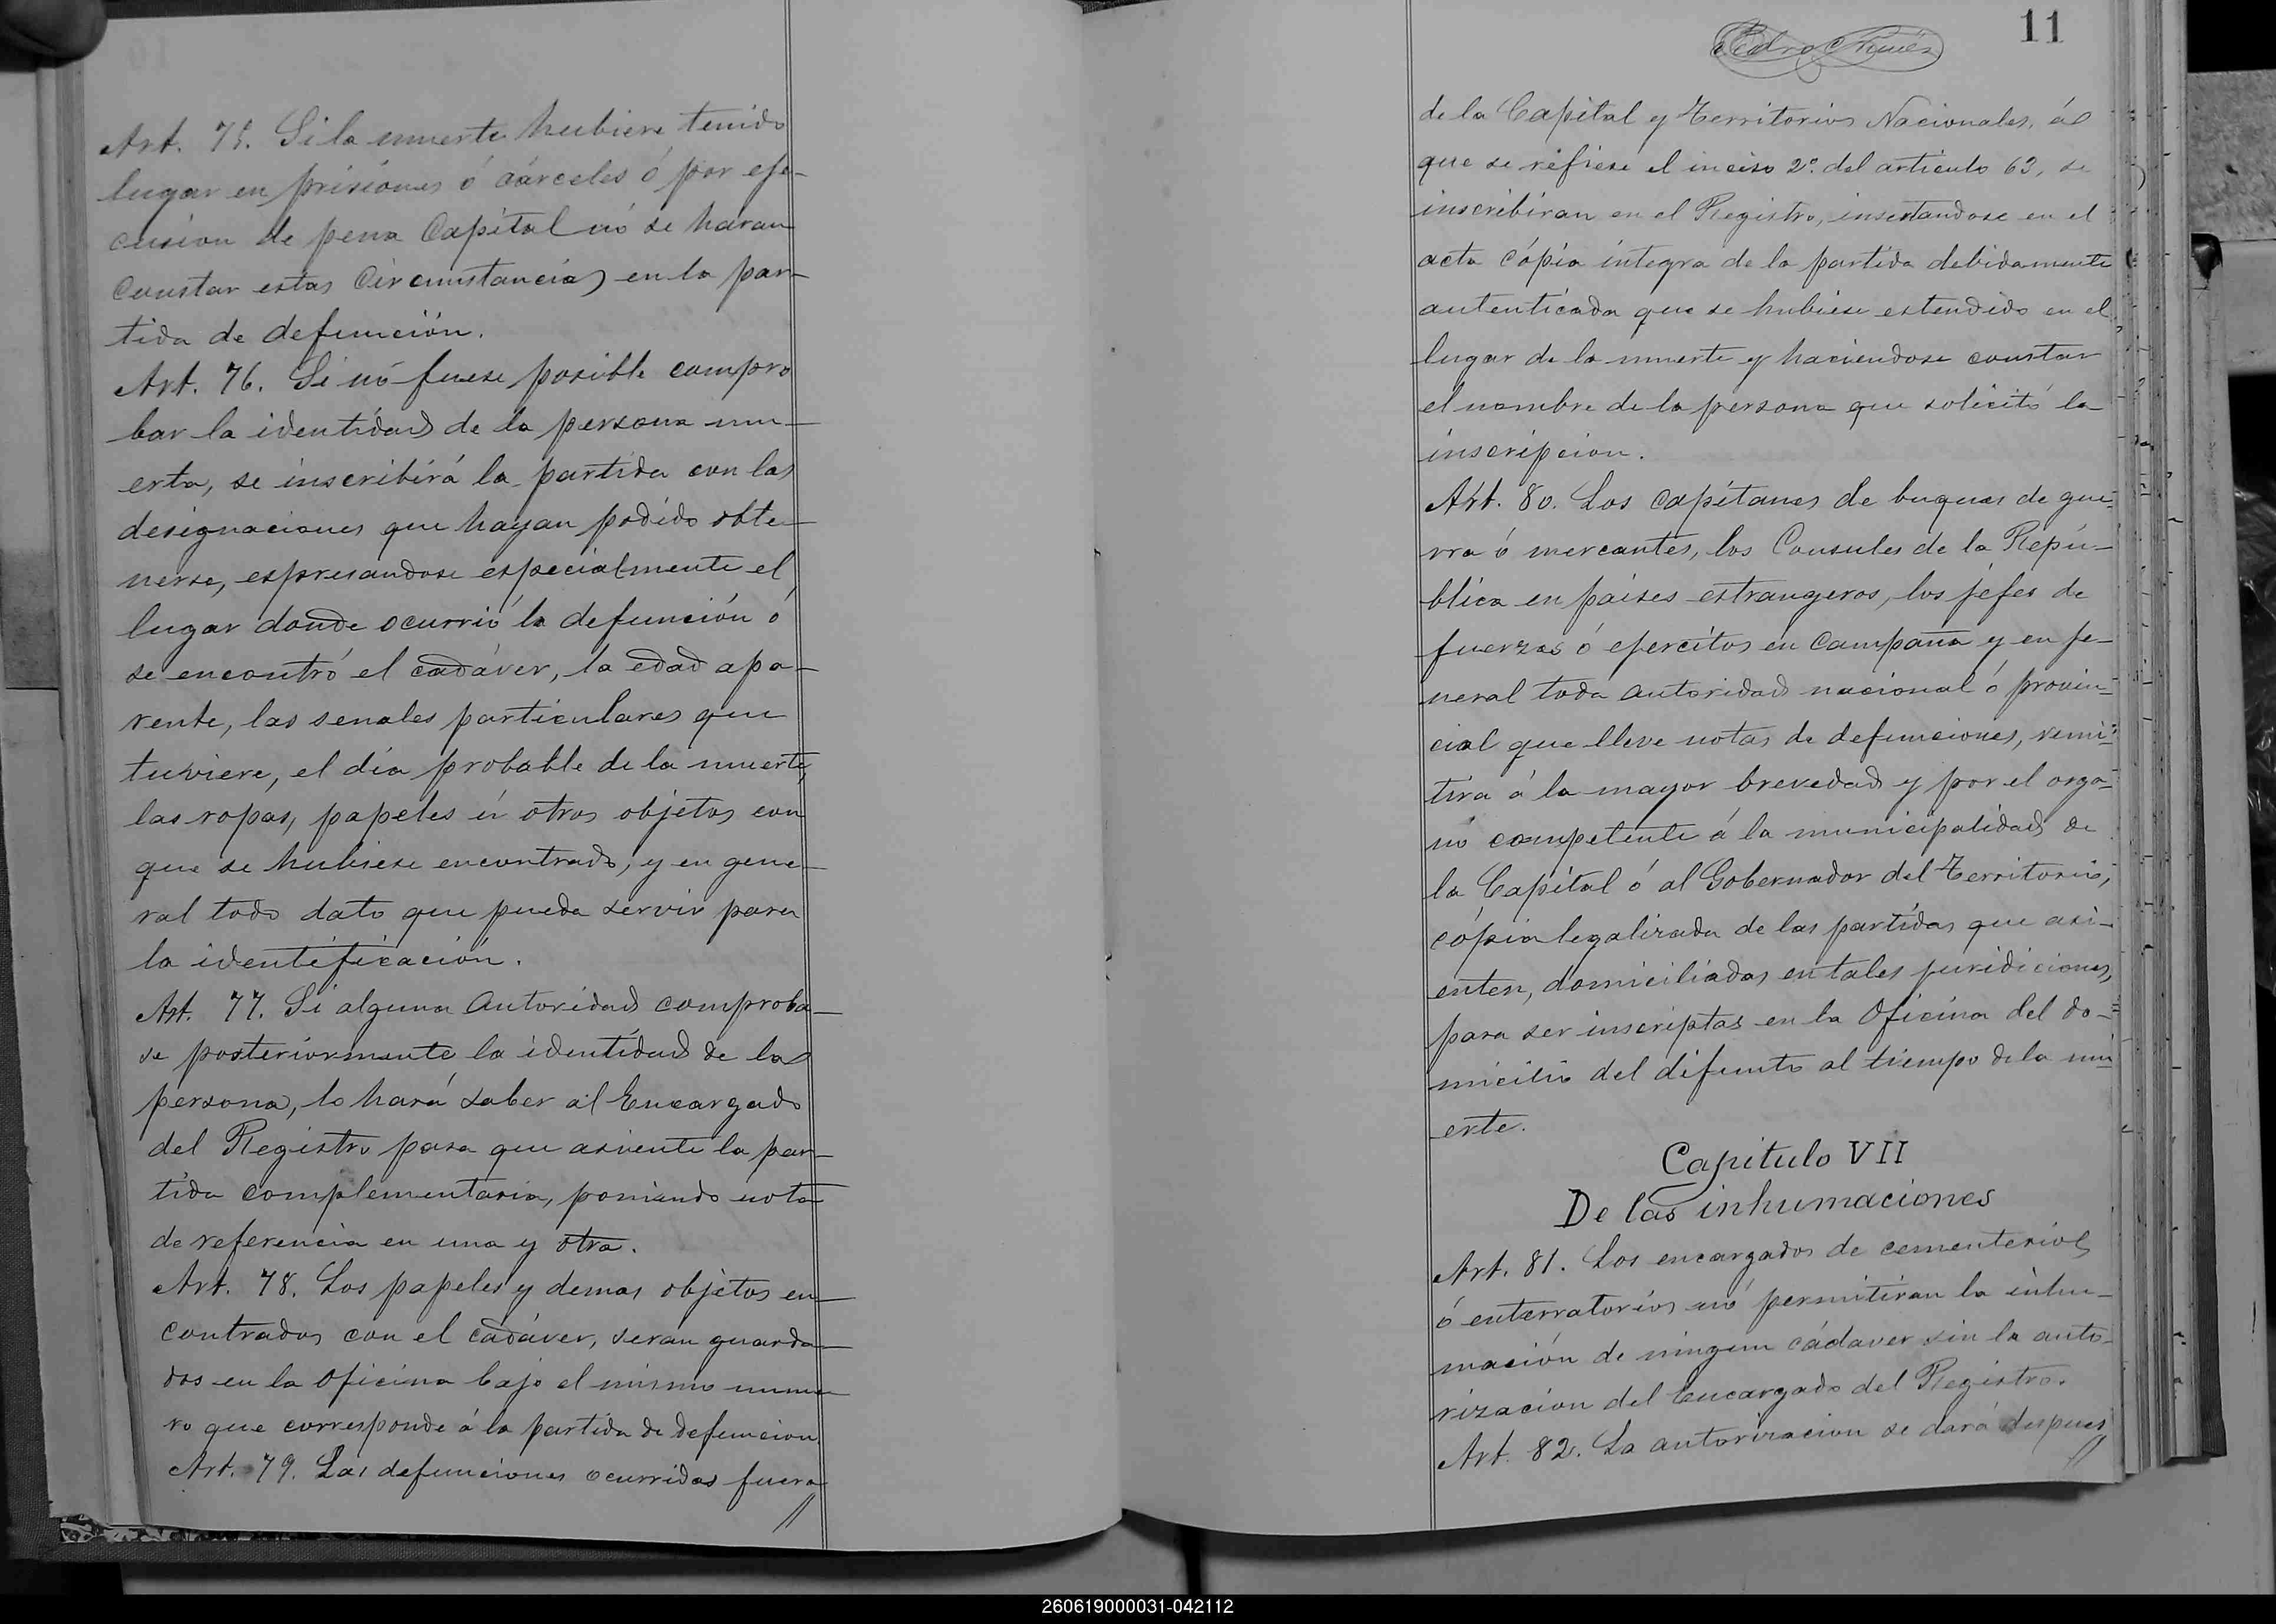 Art. 75. Si la muerte hubiere tenido
lugar en prisiones ó cárceles ó por eje-
cusion de pena Capital nó se haran
constar estas Circunstancias en la par-
tida de defunción.
Art. 76. Si nó fuese posible compro
bar la identidad de la persona mu-
erta, se inscribirá la partida con las
designaciones que hayan podido obte-
nerse, espresandose especialmente el
lugar donde ocurrió la defunción ó
se encontró el cadáver, la edad apa-
rente, las senales particulares que
tuviere, el día probable de la muerte,
las ropas, papeles ú otros objetos con
que se hubiese encontrado, y en gene-
ral todo dato que pueda servir para
la identificación.
Art. 77. Si alguna Autoridad comproba-
se posteriormente la identidad de la
persona, lo hará saber al Encargado
del Registro para que asiente la par-
tida complementaria, poniendo nota
de referencia en una y otra.
Art. 78. Los papeles y demas objetos en-
contrados con el cadáver, seran guarda-
dos en la Oficina bajo el mismo nume-
ro que corresponde á la partida de defuncion.
Art. 79. Las defunciones ocurridas fuera
11
Pedro
de la Capital y Territorios Nacionales, ál
que se refiere el inciso 2º. del articulo 63, se
inscribiran en el Registro, insertandose en el
acta cópia integra de la partida debidamente
autenticada que se hubiese estendido en el
lugar de la muerte y haciendose constar
el nombre de la persona que solicitó la
inscripcion.
Art. 80. Los capitanes de buques de gue-
rra ó mercantes, los Consules de la Repú-
blica en paises estrangeros, los jefes de
fuerzas ó ejercitos en Campaña y en je-
neral toda autoridad nacional ó provin-
cial que lleve notas de defunciones, remi-
tira á la mayor brevedad y por el orga-
nó competente á la municipalidad de
la Capital ó al Gobernador del Territorio,
cópia legalizada de las partidas que asi-
enten, domiciliados en tales juridiciones,
para ser inscriptas en la Oficina del do-
micilio del difunto al tiempo de la mu
erte.
Capitulo VII
De las inhumaciones
Art. 81. Los encargados de cementerios
ó enterratorios nó permitiran la inhu-
mación de ningun cádaver sin la auto-
rizacion del Encargado del Registro.
Art. 82. La autorizacion se dará despues
260619000031-042112